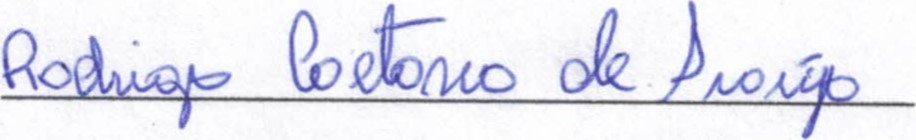 Rodrigo Caetano de Araújo